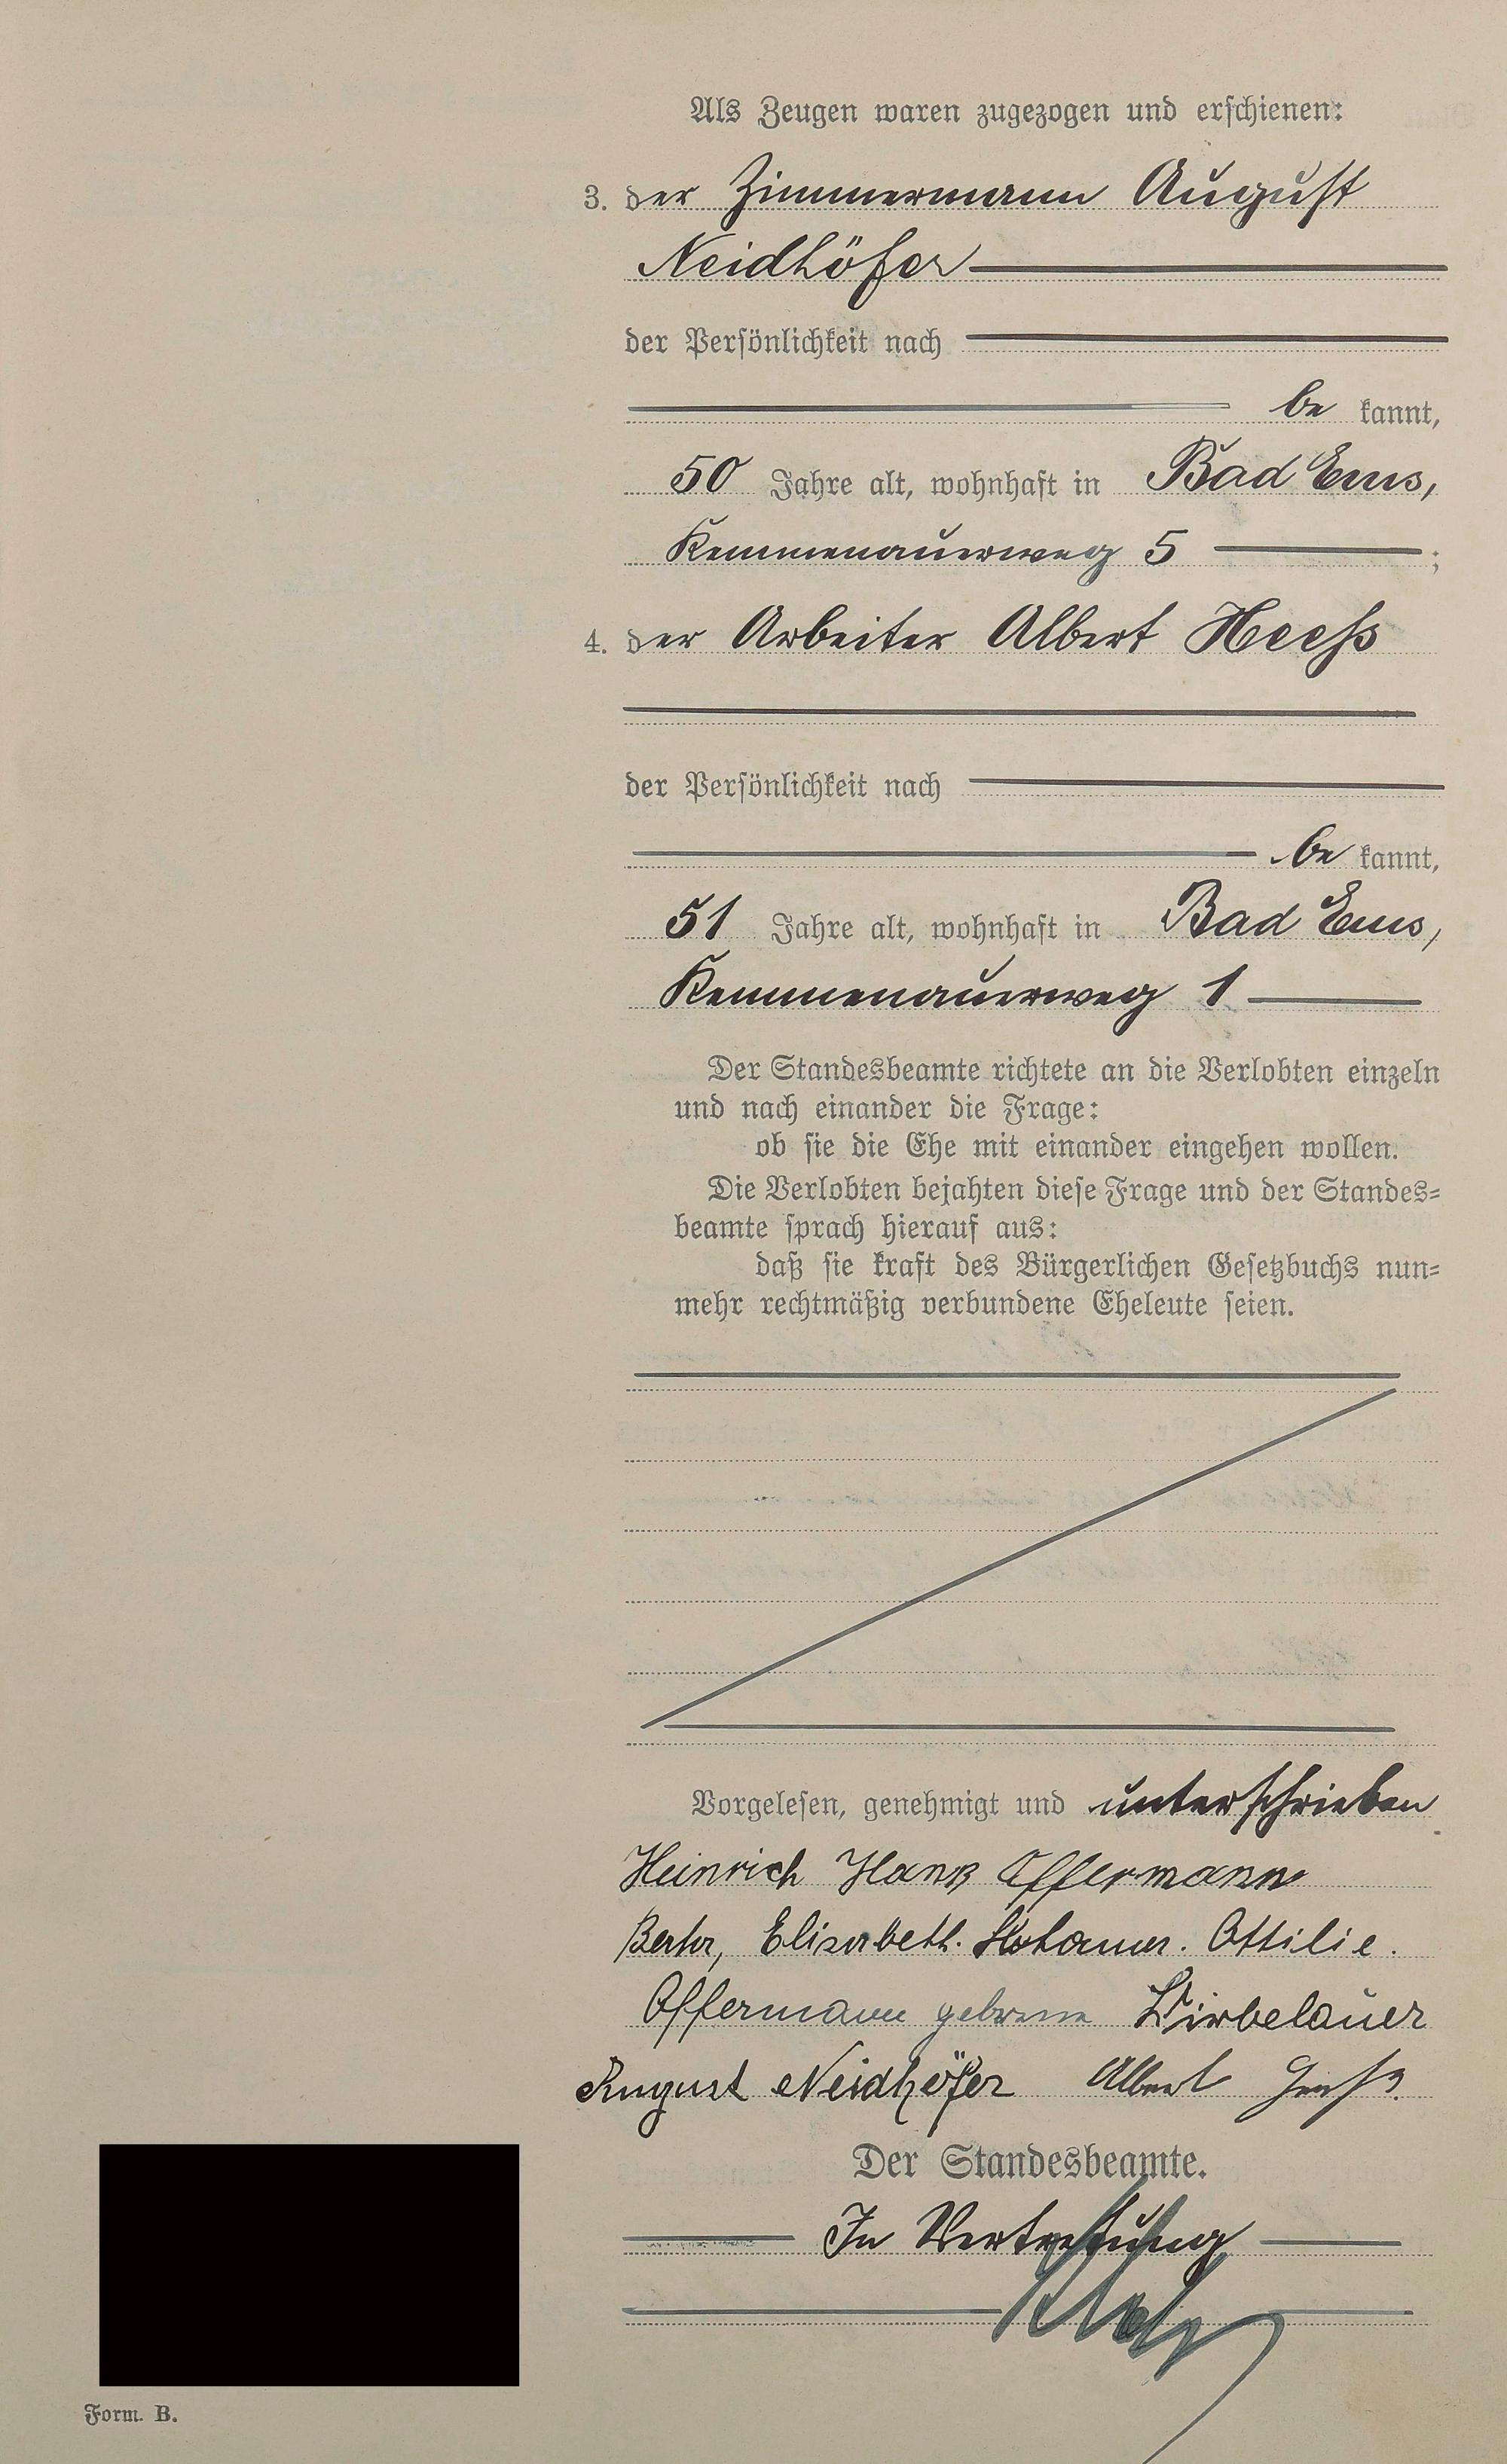 Als Zeugen waren zugezogen und erschienen:
3. der Zimmermann August
Neidhöfer
der Persönlichkeit nach
be kannt,
50 Jahre alt, wohnhaft in Bad Ems,
Kemmenauerweg 5 ;
4. der Arbeiter Albert Heeß
der Persönlichkeit nach
be kannt,
51 Jahre alt, wohnhaft in Bad Ems,
Kemmenauerweg 1
Der Standesbeamte richtete an die Verlobten einzeln
und nach einander die Frage:
ob sie die Ehe mit einander eingehen wollen.
Die Verlobten bejahten diese Frage und der Standes=
beamte sprach hierauf aus:
daß sie kraft des Bürgerlichen Gesetzbuchs nun=
mehr rechtmäßig verbundene Eheleute seien.
Vorgelesen, genehmigt und unterschrieben
Heinrich Hans Offermann
Berta, Elisabeth. Johanna. Ottilie.
Offermann geborene Wirbelauer
August Neidhöfer Albert Heeß.
Der Standesbeamte.
In Vertretung
Form. B.